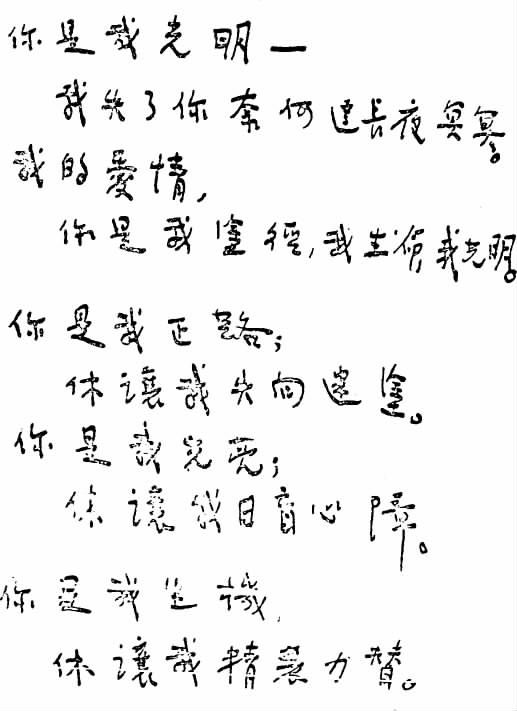 你是我光明—
我失了你奈何這長夜冥冥。
我的愛情,
你是我塗徑,我生我光明。
你是我正路;
休讓我失向迷塗。
你是我光亮;
休讓我目盲心障。
你是我生機,
休讓我精衰力替。